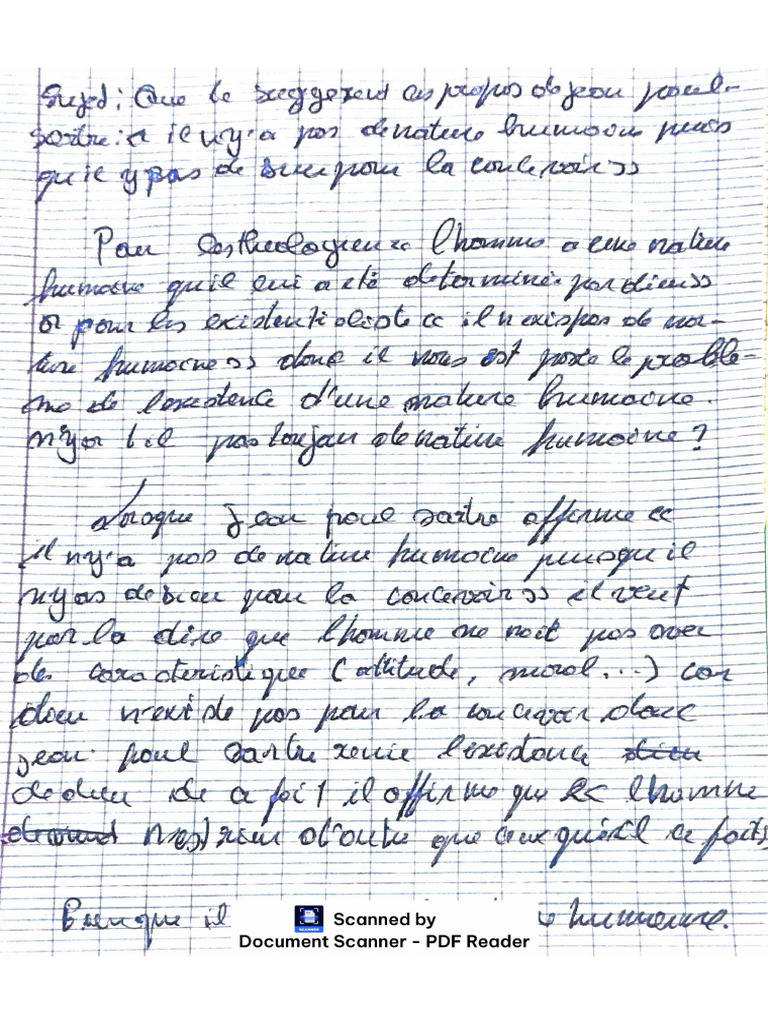 Sujed : Que te suggerent ces propos de jean poul-
sartre : « il n'y'a pas de nature humaine puis
qu'il y pas de Dieu pour la concevoir »
Pour les theologiens « l'homme a une nature
humaine qu'il lui a été determinée par dieu »
or pour les existentialiste « il n'exis pas de na-
ture humaine » donc il nous est posé le problè-
me de l'existence d'une nature humaine.
n'ya t-il pas toujour de nature humaine ?
Lorsque Jean poul sartre affirme «
il n'y'a pas de nature humaine puisqu'il
n'y as de Dieu pour la concevoir » il veut
par la dire que l'homme ne nait pas avec
des caracteristiques (attitude, moral...) car
dieu n'existe pas pour la concevoir donc
jean poul Sartre renie l'existance dieu
de dieu de ce fait il affirme que « l'homme
n'est rien d'autre que ce qu'il ce fait »
Bienque il humaine.
Scanned by
Document Scanner - PDF Reader